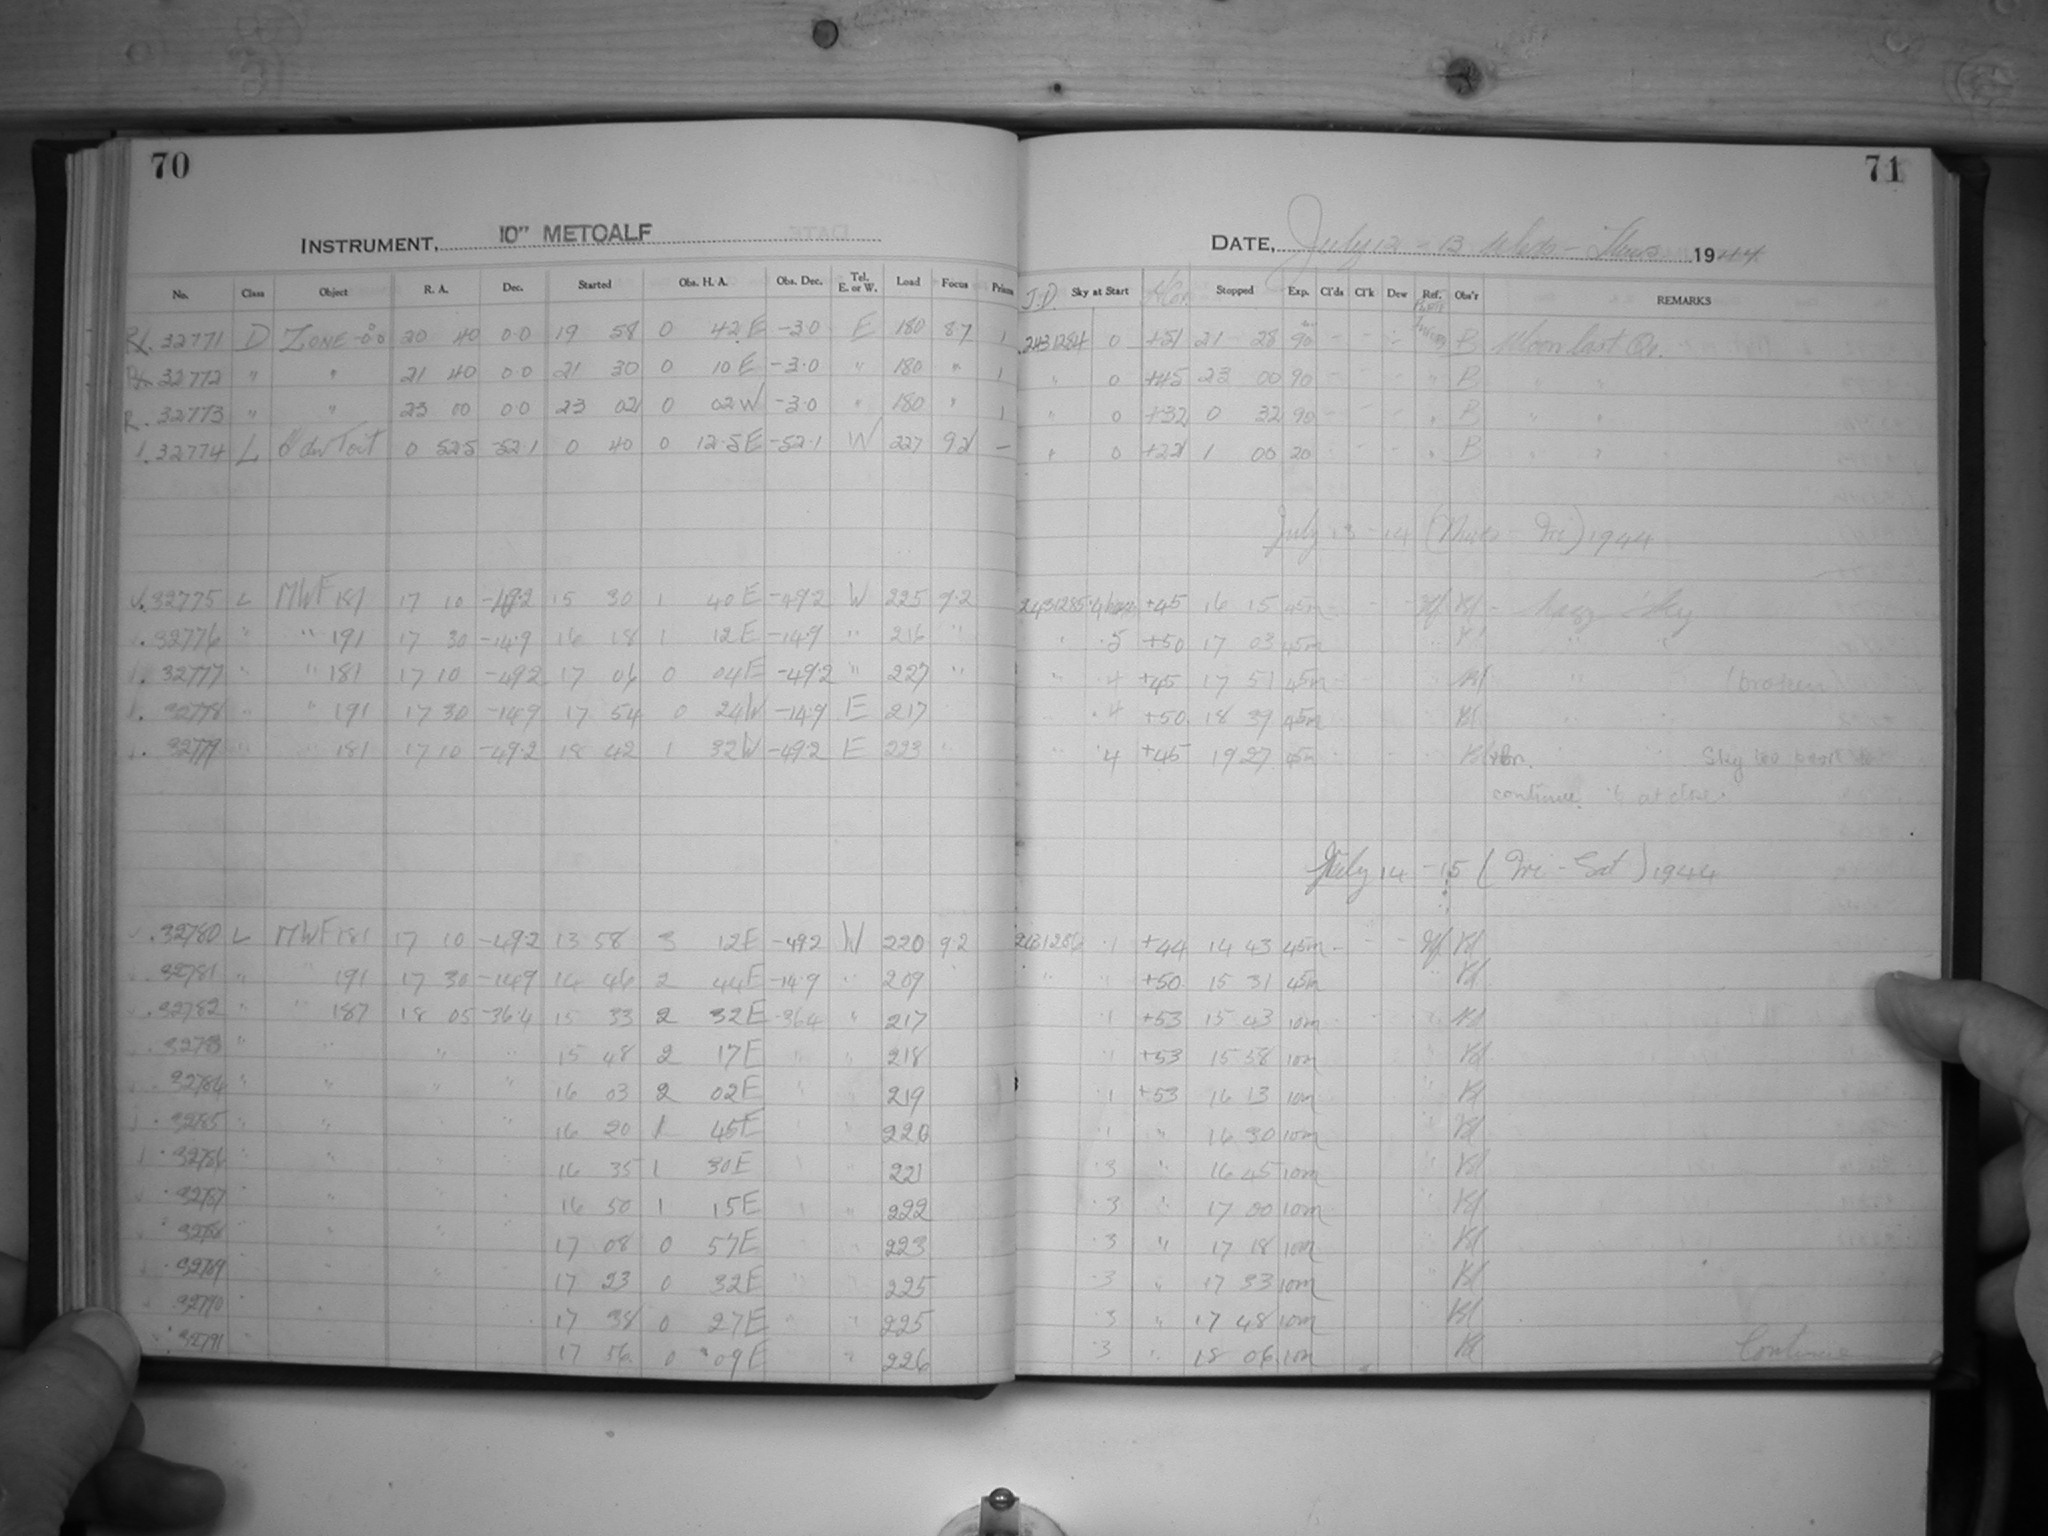 70
71
INSTRUMENT, 10" METCALF
DATE, July 12 - 13 Weds - Thurs 1944
No. Class Object R. A. Dec. Started Obs. H. A. Obs. Dec. Tel. E. or W. Load Focus Prism J.D. Sky at Start Stopped Exp. Cl'ds Cl'k Dew Ref. Obs'r REMARKS
32771 D ZONE 20 40 0.0 19 58 0 42 E -3.0 E 180 8.7 1 2431284 0 +51 21 28 90 B Moon last Qr.
32772 " " 21 40 0.0 21 30 0 10 E -3.0 " 180 " 1 " 0 +45 23 00 90 " B " "
R. 32773 " " 23 00 0.0 23 02 0 02 W -3.0 " 180 " 1 " 0 +32 0 32 90 " B " "
32774 L du Toit 0 52.5 -52.1 0 40 0 12.5 E -52.1 W 227 9.2 - " 0 1 00 20 " B " "
July 13 - 14 (Thurs - Fri) 1944
32775 L MWF 181 17 10 -49.2 15 30 1 40 E -49.2 W 225 9.2 2431285 +45 16 15 45m Hazy Sky
32776 " " 191 17 30 -14.9 16 18 1 12 E -14.9 " 216 " " .5 +50 17 03 45m " "
32777 " " 181 17 10 -49.2 17 06 0 04 E -49.2 " 227 " " .4 +45 17 51 45m " (broken)
32778 " " 191 17 30 -14.9 17 54 0 24 W -14.9 E 217 .4 +50 18 39 45m
32779 " " 181 17 10 -49.2 18 42 1 32 W -49.2 E 223 " .4 +45 19 27 45m Sky too poor to
continue at close.
July 14 - 15 (Fri - Sat) 1944
32780 L MWF 181 17 10 -49.2 13 58 3 12 E -49.2 W 220 9.2 2431286 .1 +44 14 43 45m
32781 " " 191 17 30 -14.9 14 46 2 44 E -14.9 " 209 +50 15 31 45m
32782 " " 187 18 05 -36.4 15 33 2 32 E -36.4 " 217 .1 +53 15 43 10m
32783 " " " " 15 48 2 17 E " " 218 .1 +53 15 58 10m
32784 " " " " 16 03 2 02 E " " 219 .1 +53 16 13 10m
32785 " " " " 16 20 1 45 E " " 220 .1 " 16 30 10m
32786 " " " 16 35 1 30 E " " 221 .3 " 16 45 10m
32787 " " " 16 50 1 15 E " " 222 .3 " 17 00 10m
32788 " " " 17 08 0 57 E " 223 .3 " 17 18 10m
32789 " " 17 23 0 32 E " " 225 .3 " 17 33 10m
32790 " 17 38 0 27 E " " 225 .3 " 17 48 10m
32791 17 56 0 09 E " 226 .3 " 18 06 10m Continue